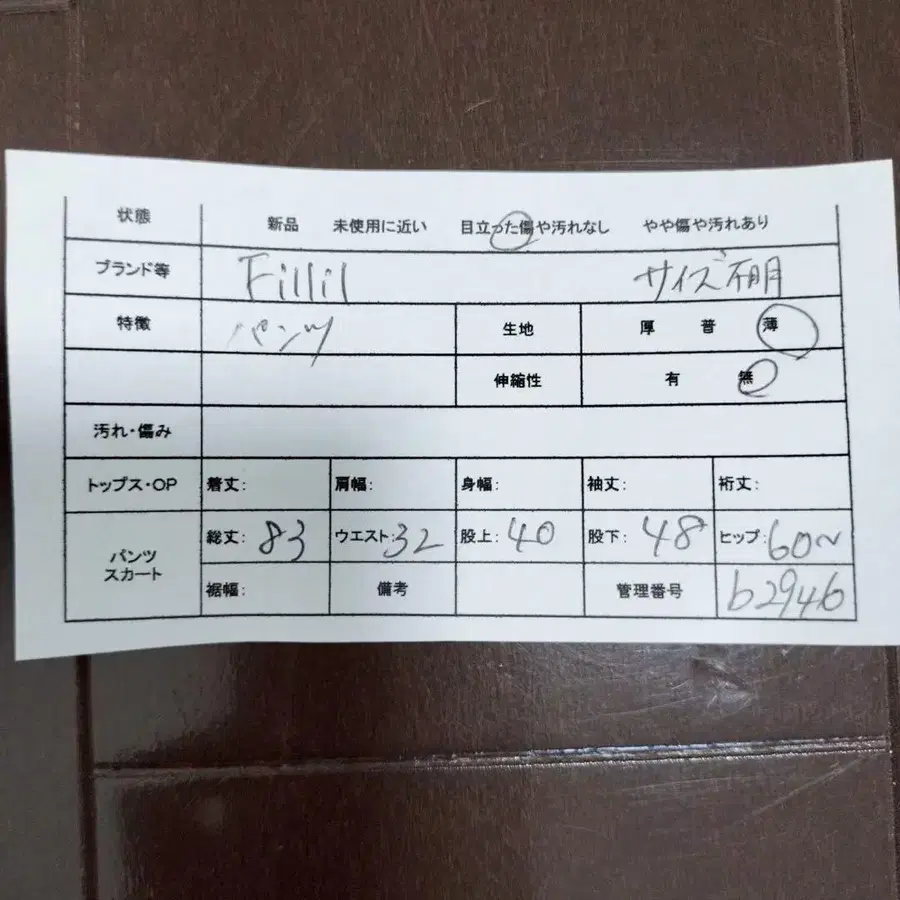 状態 新品 未使用に近い 目立った傷や汚れなし やや傷や汚れあり
ブランド等 Fillil サイズ不明
特徴 パンツ 生地 厚 普 薄
伸縮性 有 無
汚れ・傷み
トップス・OP 着丈: 肩幅: 身幅: 袖丈: 裄丈:
パンツ スカート 総丈: 83 ウエスト: 32 股上: 40 股下: 48 ヒップ: 60~
裾幅: 備考 管理番号 b2946